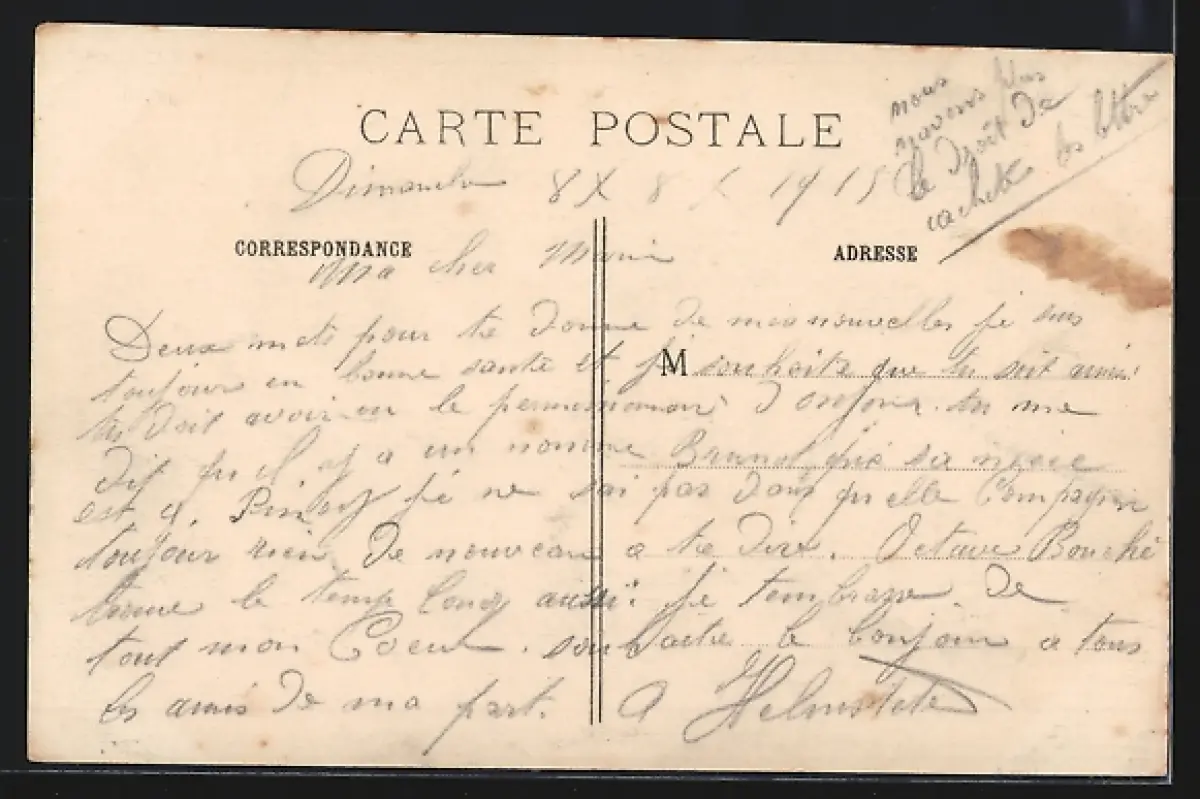 CARTE POSTALE
nous
n'avons plus
le droit de
cacheté les lettre
Dimanche 8 X 8 X 1915
CORRESPONDANCE
ADRESSE
Ma cher Marie
Deux mots pour te donné de mes nouvelles je suis
M
toujour en bonne santé et je souhaite que tu soit ainsi
tu doit avoir eu le permissionnai d'onjour. tu me
dit qu'il y a un nommé Brunot que sa niece
est a je ne sai pas dans qu'elle Compagnie
toujour rien de nouveau a te dire. Octave Bouché
trouve le temp long aussi. je t'embrasse de
tout mon Coeur. souhaite le bonjour a tous
les amis de ma part. A Helmstete